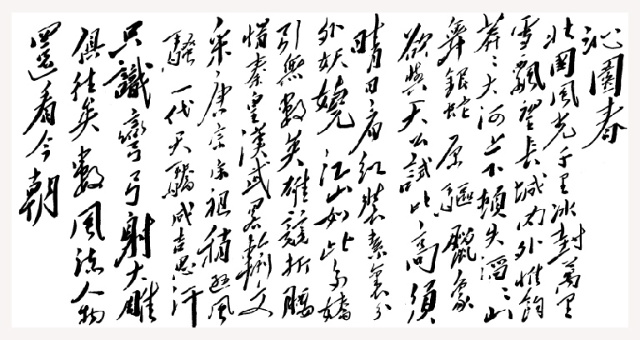 沁園春
北國風光千里冰封萬里
雪飄望長城内外惟餘
莽〻大河上下頓失滔〻山
舞銀蛇原驅蠟象
欲與天公試比高須
晴日看紅裝素裹分
外妖嬈江山如此多嬌
引無數英雄競折腰
惜秦皇漢武略輸文
采唐宗宋祖稍遜風
騷一代天驕成吉思汗
只識彎弓射大雕
俱往矣數風流人物
還看今朝